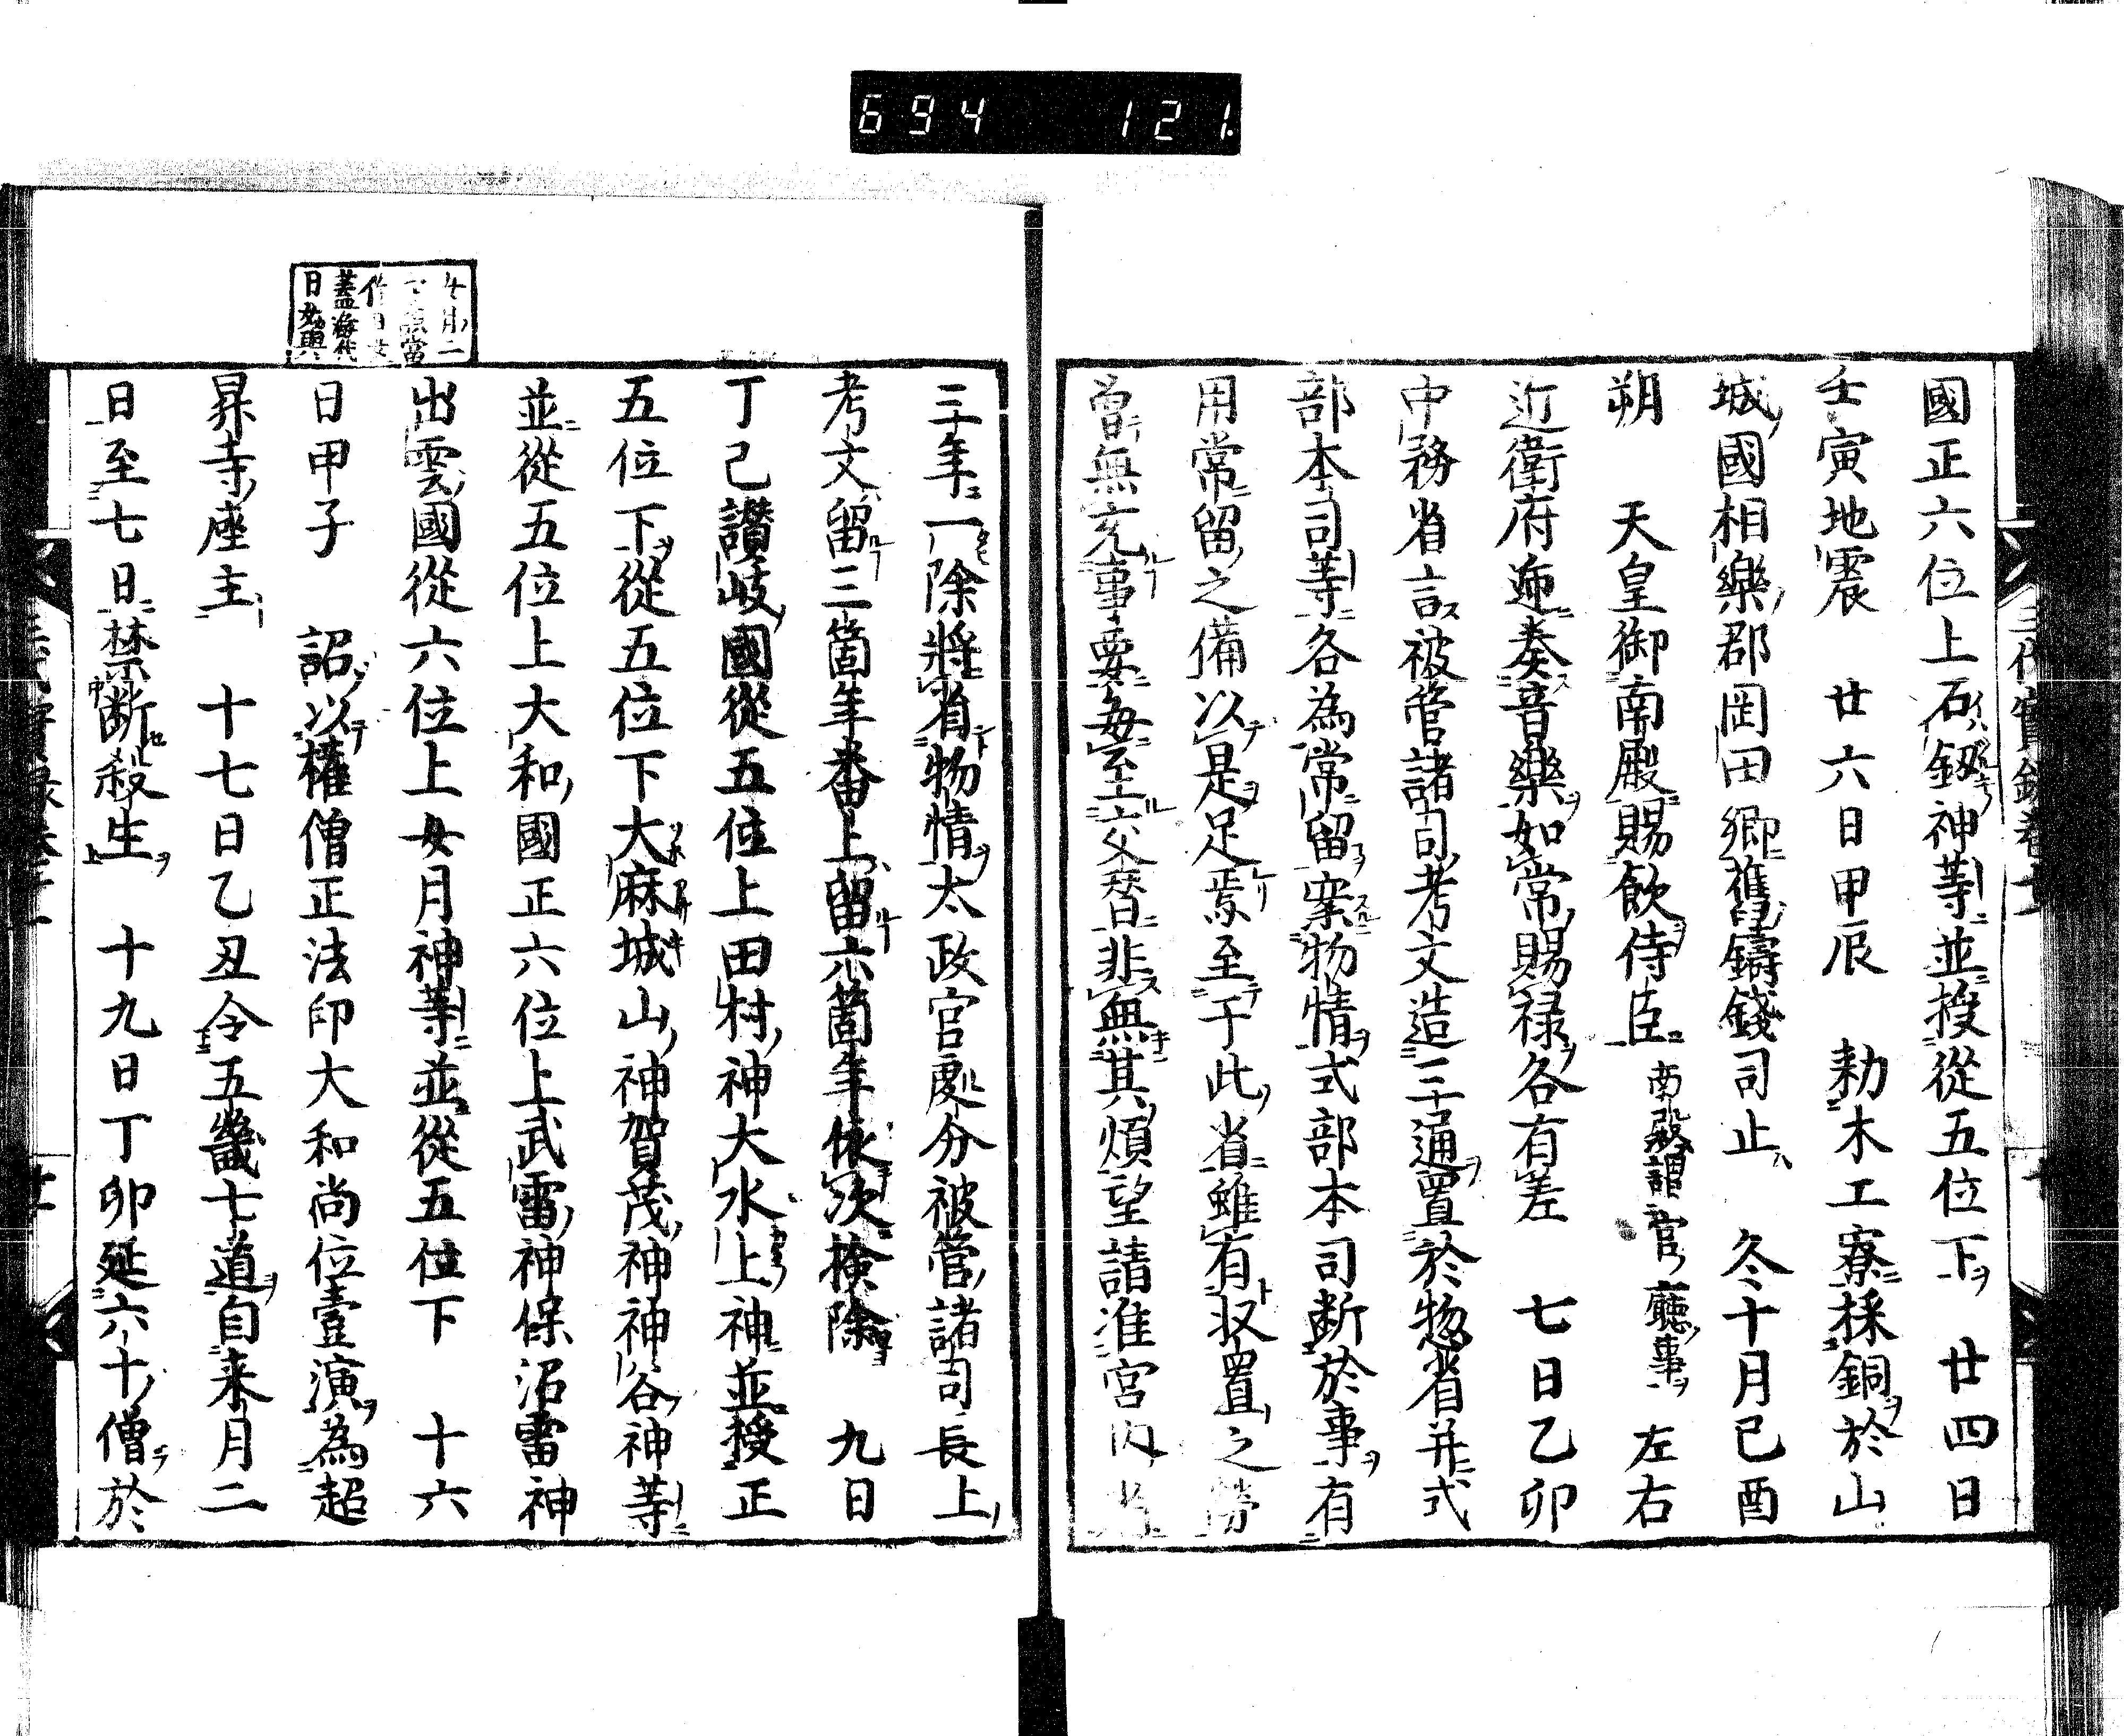 694 121.
國正六位上石劔神等並授從五位下 廿四日
壬寅地震 廿六日甲辰 勅木工寮採銅於山
城國相樂郡岡田鄉舊鑄錢司止 冬十月己酉
朔 天皇御南殿賜飲侍臣 南殿謂官廳事 左右
近衛府迎奏音樂如常賜祿各有差 七日乙卯
中務省言被管諸司考文造三通置於惣省并式
部本司等各為常留案物情式部本司断於事有
用常留之備以是足焉至于此省雖有收置之勞
曾無充事要每至交替非無其煩望請准宮内省
三年一除將省物情太政官處分被管諸司長上
考文留三箇年番上留六箇年依次檢除 九日
丁巳讃岐國從五位上田村神大水上神並授正
五位下從五位下大麻城山神賀茂神神谷神等
並從五位上大和國正六位上武雷神保沼雷神
出雲國從六位上女月神等並從五位下 十六
日甲子 詔以權僧正法印大和尚位壹演為超
昇寺座主 十七日乙丑令五畿七道自来月二
日至七日禁断殺生 十九日丁卯延六十僧於
三代實錄卷十一